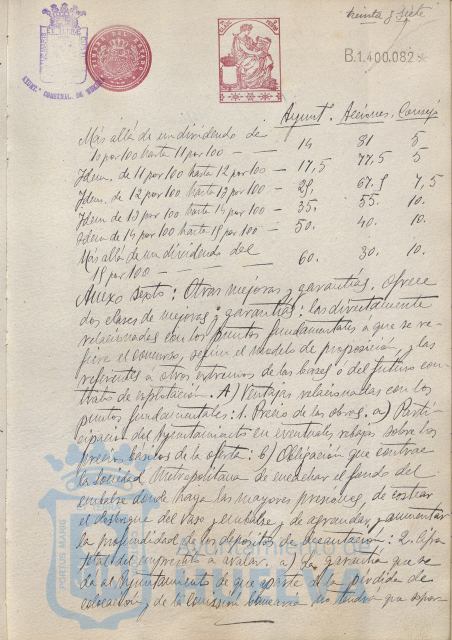 treinta y siete
B.1.400.082
Ayunt.º Acciones. Consejo
Más allá de un dividendo de
10 por 100 hasta 11 por 100 — — 14 81 5
Idem. de 11 por 100 hasta 12 por 100 — 17,5 77,5 5
Idem. de 12 por 100 hasta 13 por 100 — 25, 67,5 7,5
Idem de 13 por 100 hasta 14 por 100 — 35. 55. 10.
Idem de 14 por 100 hasta 18 por 100 — 50. 40. 10.
Más allá de un dividendo del
18 por 100 — — — — — 60. 30. 10.
Anexo sexto: Otras mejoras y garantías. Ofrece
dos clases de mejoras y garantías: las directamente
relacionadas con los puntos fundamentales a que se re-
fiere el concurso, según el modelo de proposición y las
referentes á otros extremos de las bases o del futuro con-
trato de explotación. A) Ventajas relacionadas con los
puntos fundamentales: 1. Precio de las obras. a) Parti-
cipación del Ayuntamiento en eventuales rebajas sobre los
precios básicos de la oferta: b) Obligación que contrae
la Sociedad Metropolitana de enlechar el fondo del
embalse donde haya las mayores presiones, de costear
el desbrague del vaso y embalse y de agrandar y aumentar
la profundidad de los depósitos de decantación: 2. Cifra
total del emprestito a avalar. a) La garantía que se
da al Ayuntamiento de que aparte de la perdida de
colocación y de la comisión bancaria no tendrá que sopor-
Ayuntamiento de
HUELVA
PORTUS MARIS